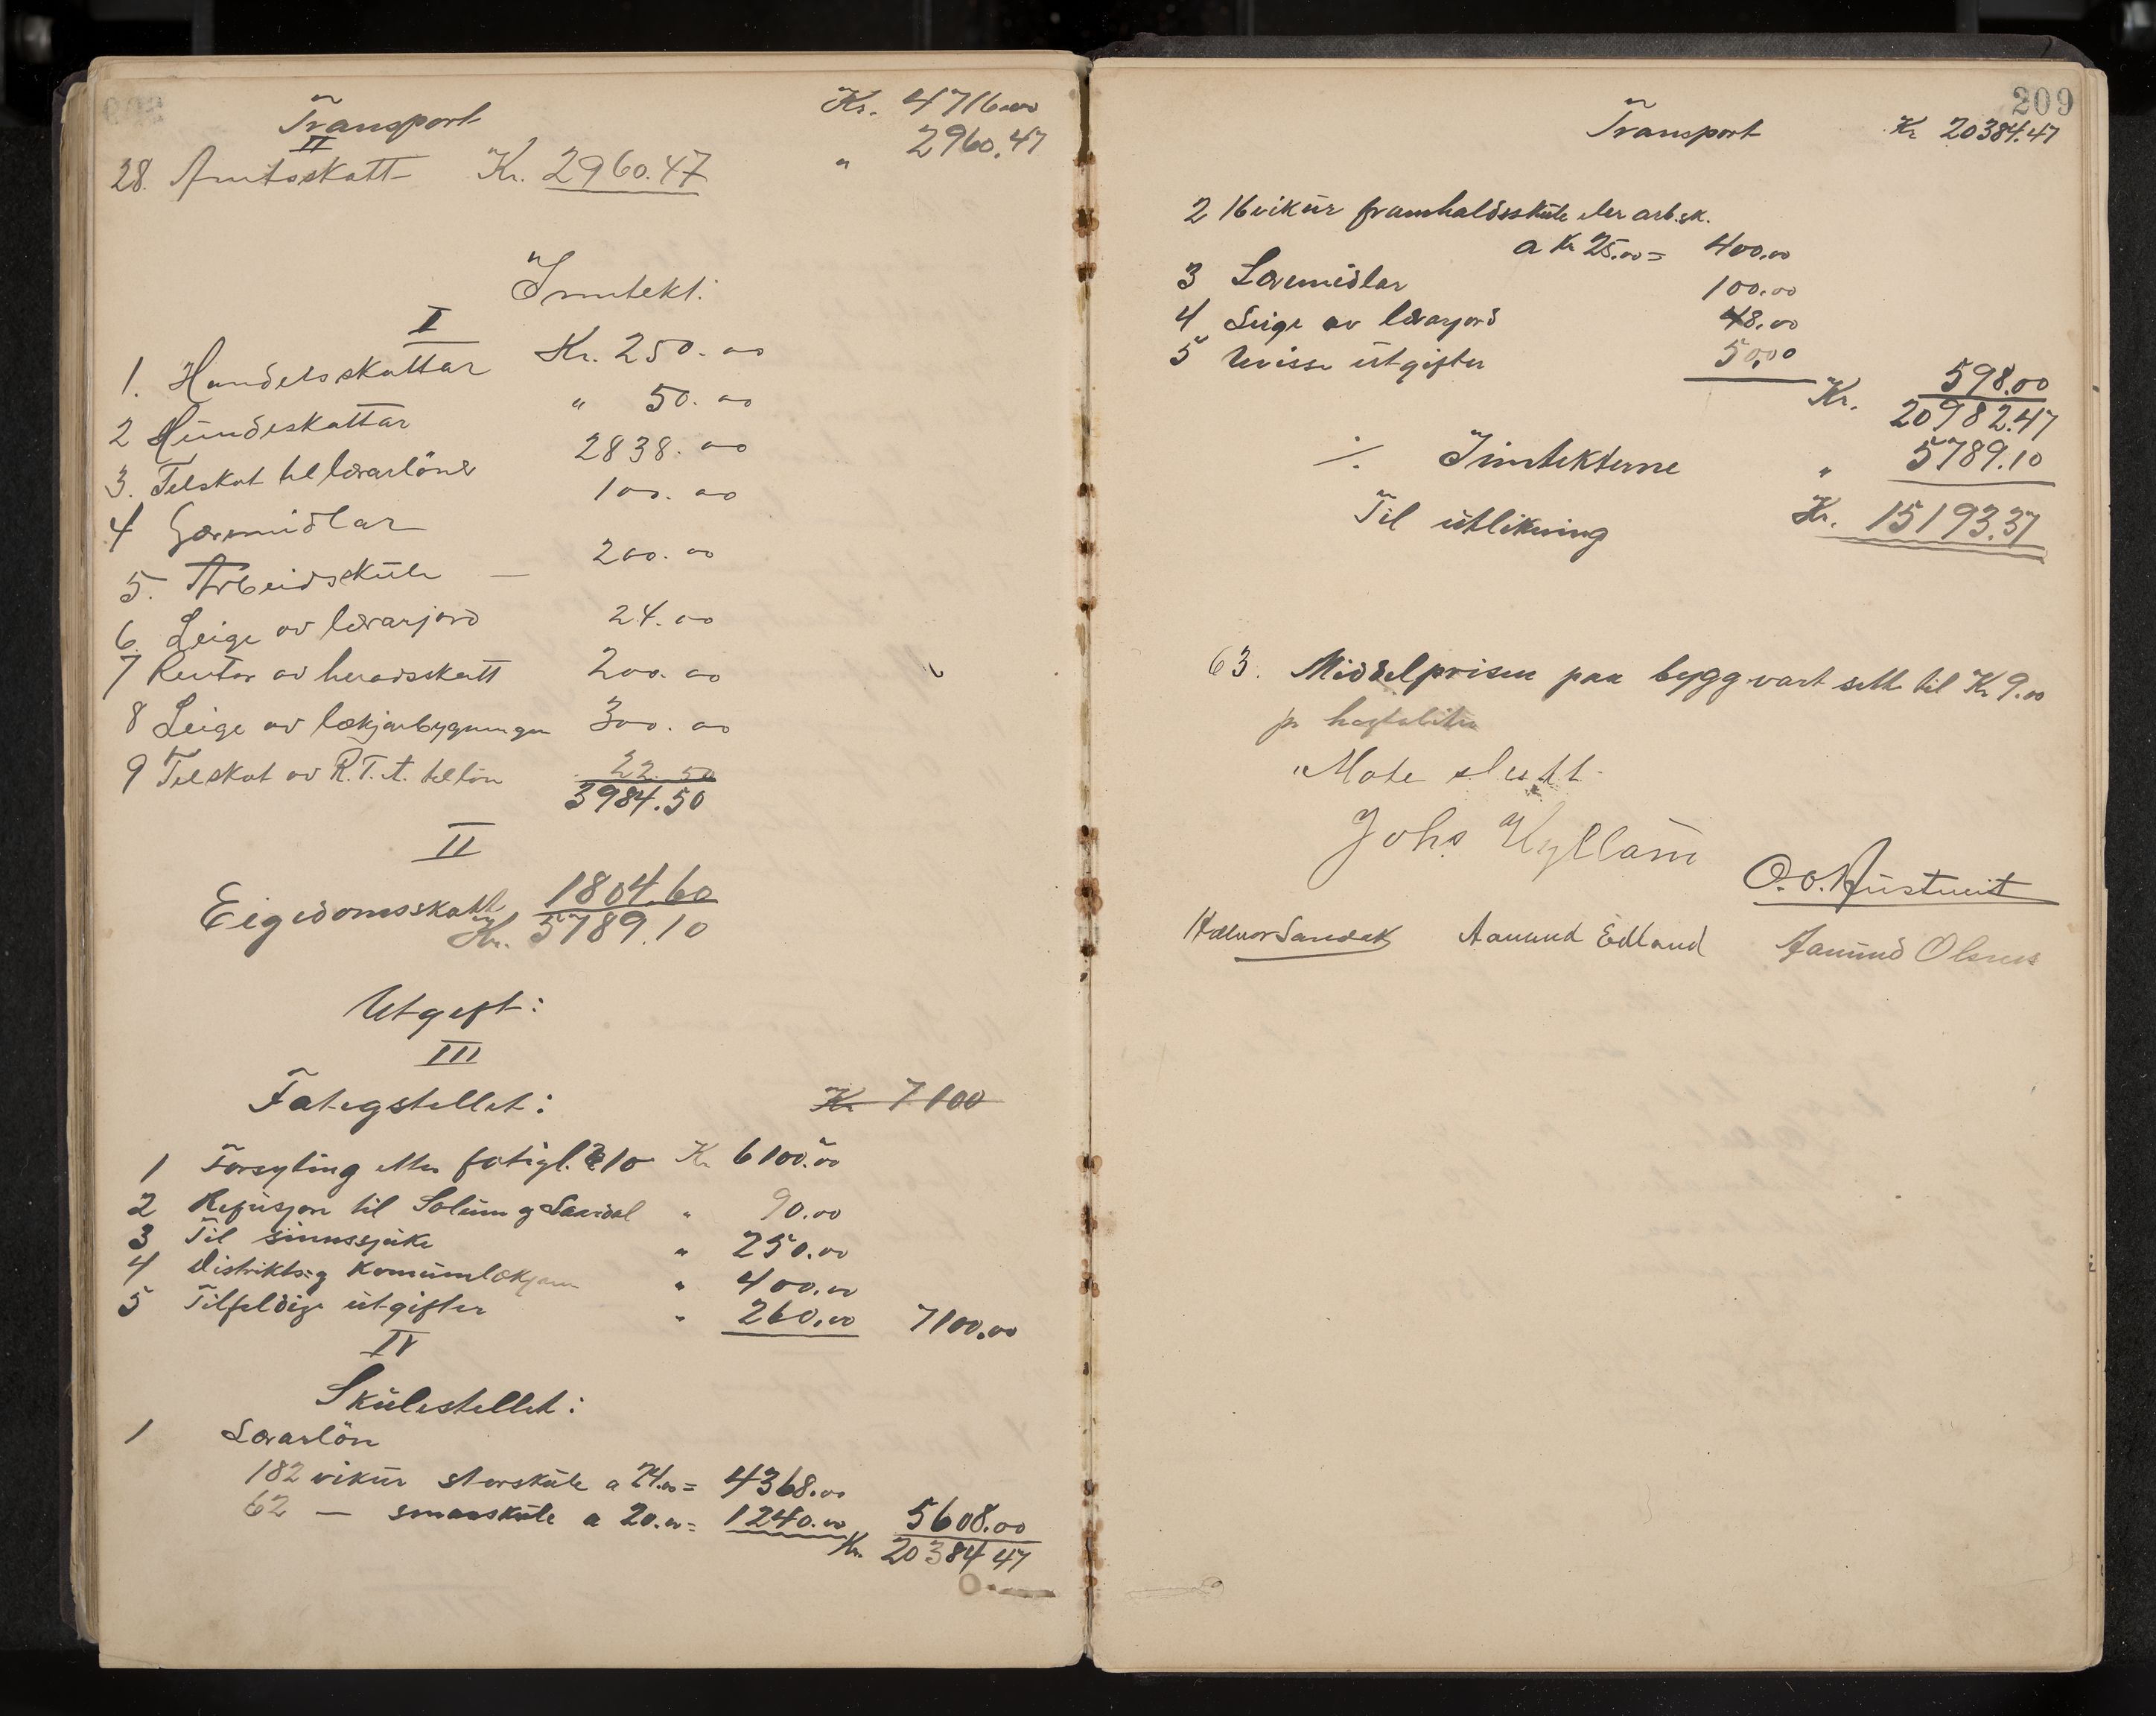 Transport Kr. 4716.00
II
28. Amtsskatt Kr. 2960.47 " 2960.47
Inntekt:
I
1. Handelsskattar Kr. 250.00
2 Hundeskattar " 50.00
3. Tilskot til lærarlöner 2838.00
4 Læremidlar 100.00
5. Arbeidsskule — 200.00
6. Leige av lærarjord 24.00
7 Rentor av heradsskatt 200.00
8 Leige av lækjarbygningen 300.00
9 Tilskot av R.T.A. til lön 22.50
3984.50
II
Eigedomsskatt 1804.60
Kr. 5789.10
Utgift:
III
Fatigstellet: Kr 7100
1 Forsyting etter fatigl. § 10 Kr 6100.00
2 Refusjon til Solum og Sauidal " 90.00
3 Til sinnssjuke " 250.00
4 Distrikts: og Komunnlækjaren " 400.00
5 Tilfeldige utgifter " 260.00 7100.00
IV
Skulestellet:
1 Lærarlön
182 vikur storskule a 24.00 = 4368.00
62 — smaaskule a 20.00 = 1240.00 5608.00
Kr. 20384 47
209
Transport Kr 20384.47
2 16 vikur framhaldsskule eller arb.sk.
a Kr 25.00 = 400.00
3 Læremidlar 100.00
4 Leige av lærarjord 48.00
5 Uvisse utgifter 50.00 598.00
Kr. 20982.47
./. Inntekterne " 5789.10
Til utlikning Kr. 15193.37
63. Middelprisen paa bygg vart sett til Kr 9.00
pr hegtoliter
Møte slutt.
Johs Kyllam
O. O. Austveit
Halvor Sandok Aamund Edland Aamund Olsnes